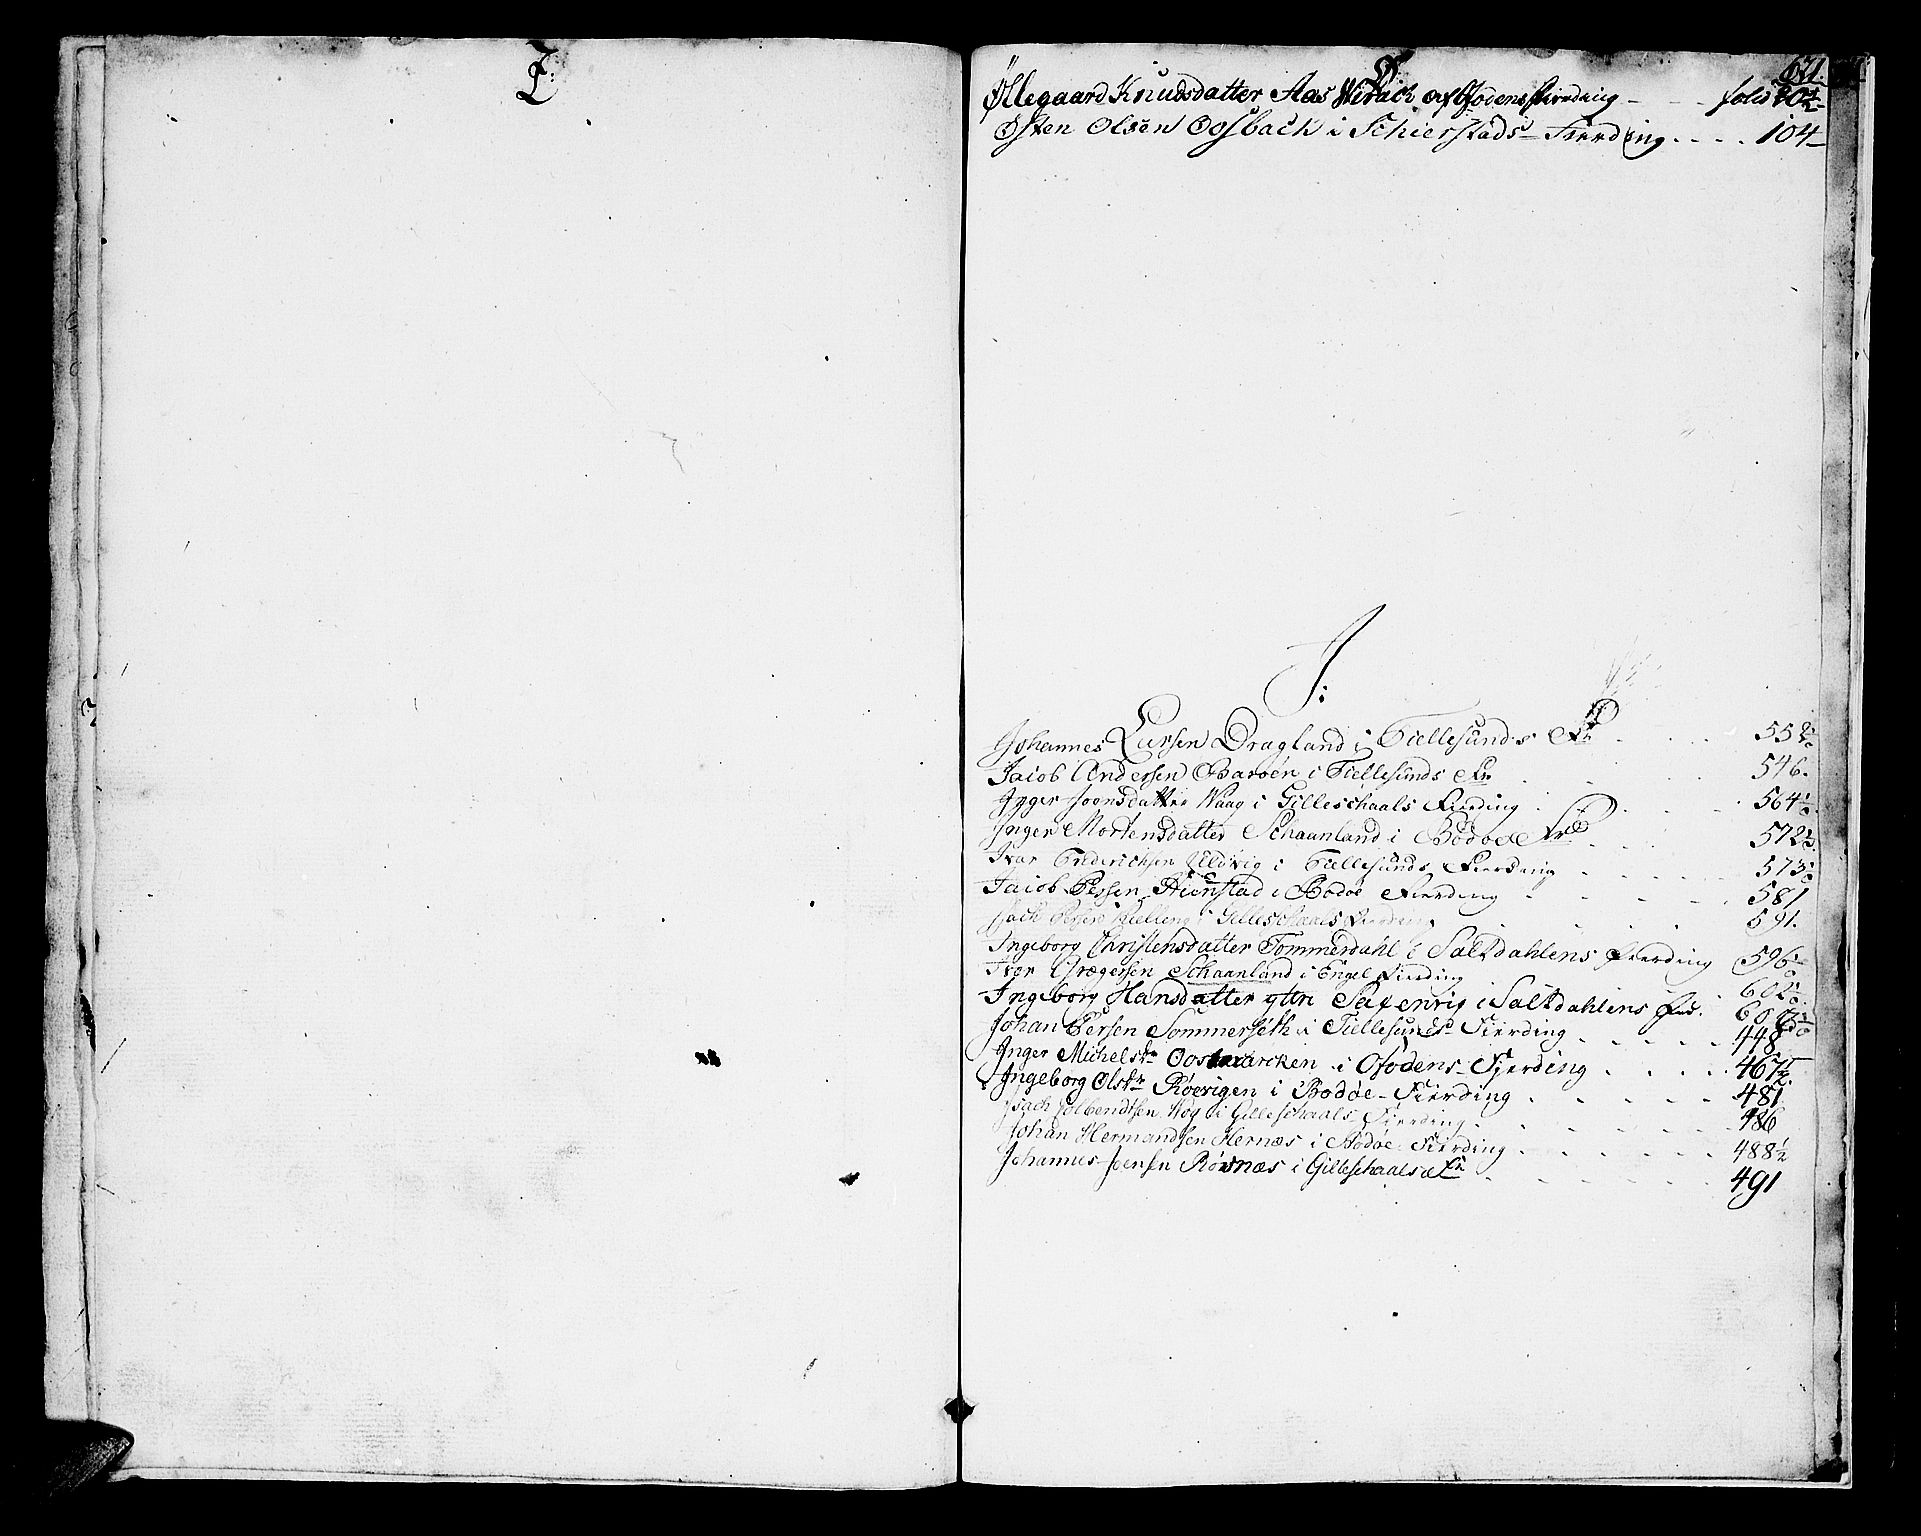 Z:
Ø.
621.
Øllegaard Knudsdatter Aas Wirach af Ofodens Fierding - - - folio 20½
Østen Olsen Oosbach i Schierstads Fierding . . . . 104
J:
Johannes Larsen Dragland i Tiellesunds Fr . . . . 558½
Jacob Andersen Barøen i Tiellesunds Fr . . . 546.
Joensdatter Waag i Gilleschaals Fierding . . . 564½
Inger Mortensdatter Schaanland i Bodøe Frd . . . 572½
Ivar Frederichsen i Tiellesunds Fierding . . . 573½
Jacob Persen Hienstad i Bodøe Fierding . . . 581
i Gilleschaals Fierding . . . 591.
Ingeborg Christensdatter Tommerdahl i Saltdahlens Fierding 596½
Iver Schaanland i Engel Fierding . 602½
Ingeborg Hansdatter yttre i Saltdahlens Frd. 607½
Johan Persen Sommerseth i Tiellesunds Fierding . . . . . 448
Inger Michelsdr i Ofodens Fierding . . . . 467½
Ingeborg Olsdr Røevigen i Bodøe Fierding . . . . . 481
Isach i Gilleschaals Fierding . . . . 486
Johan Hermandsen Hernæs i Bodøe Fierding . . . . . 488½
Johannes Joensen Røsnæs i Gilleschaals Fr . . . . . 491